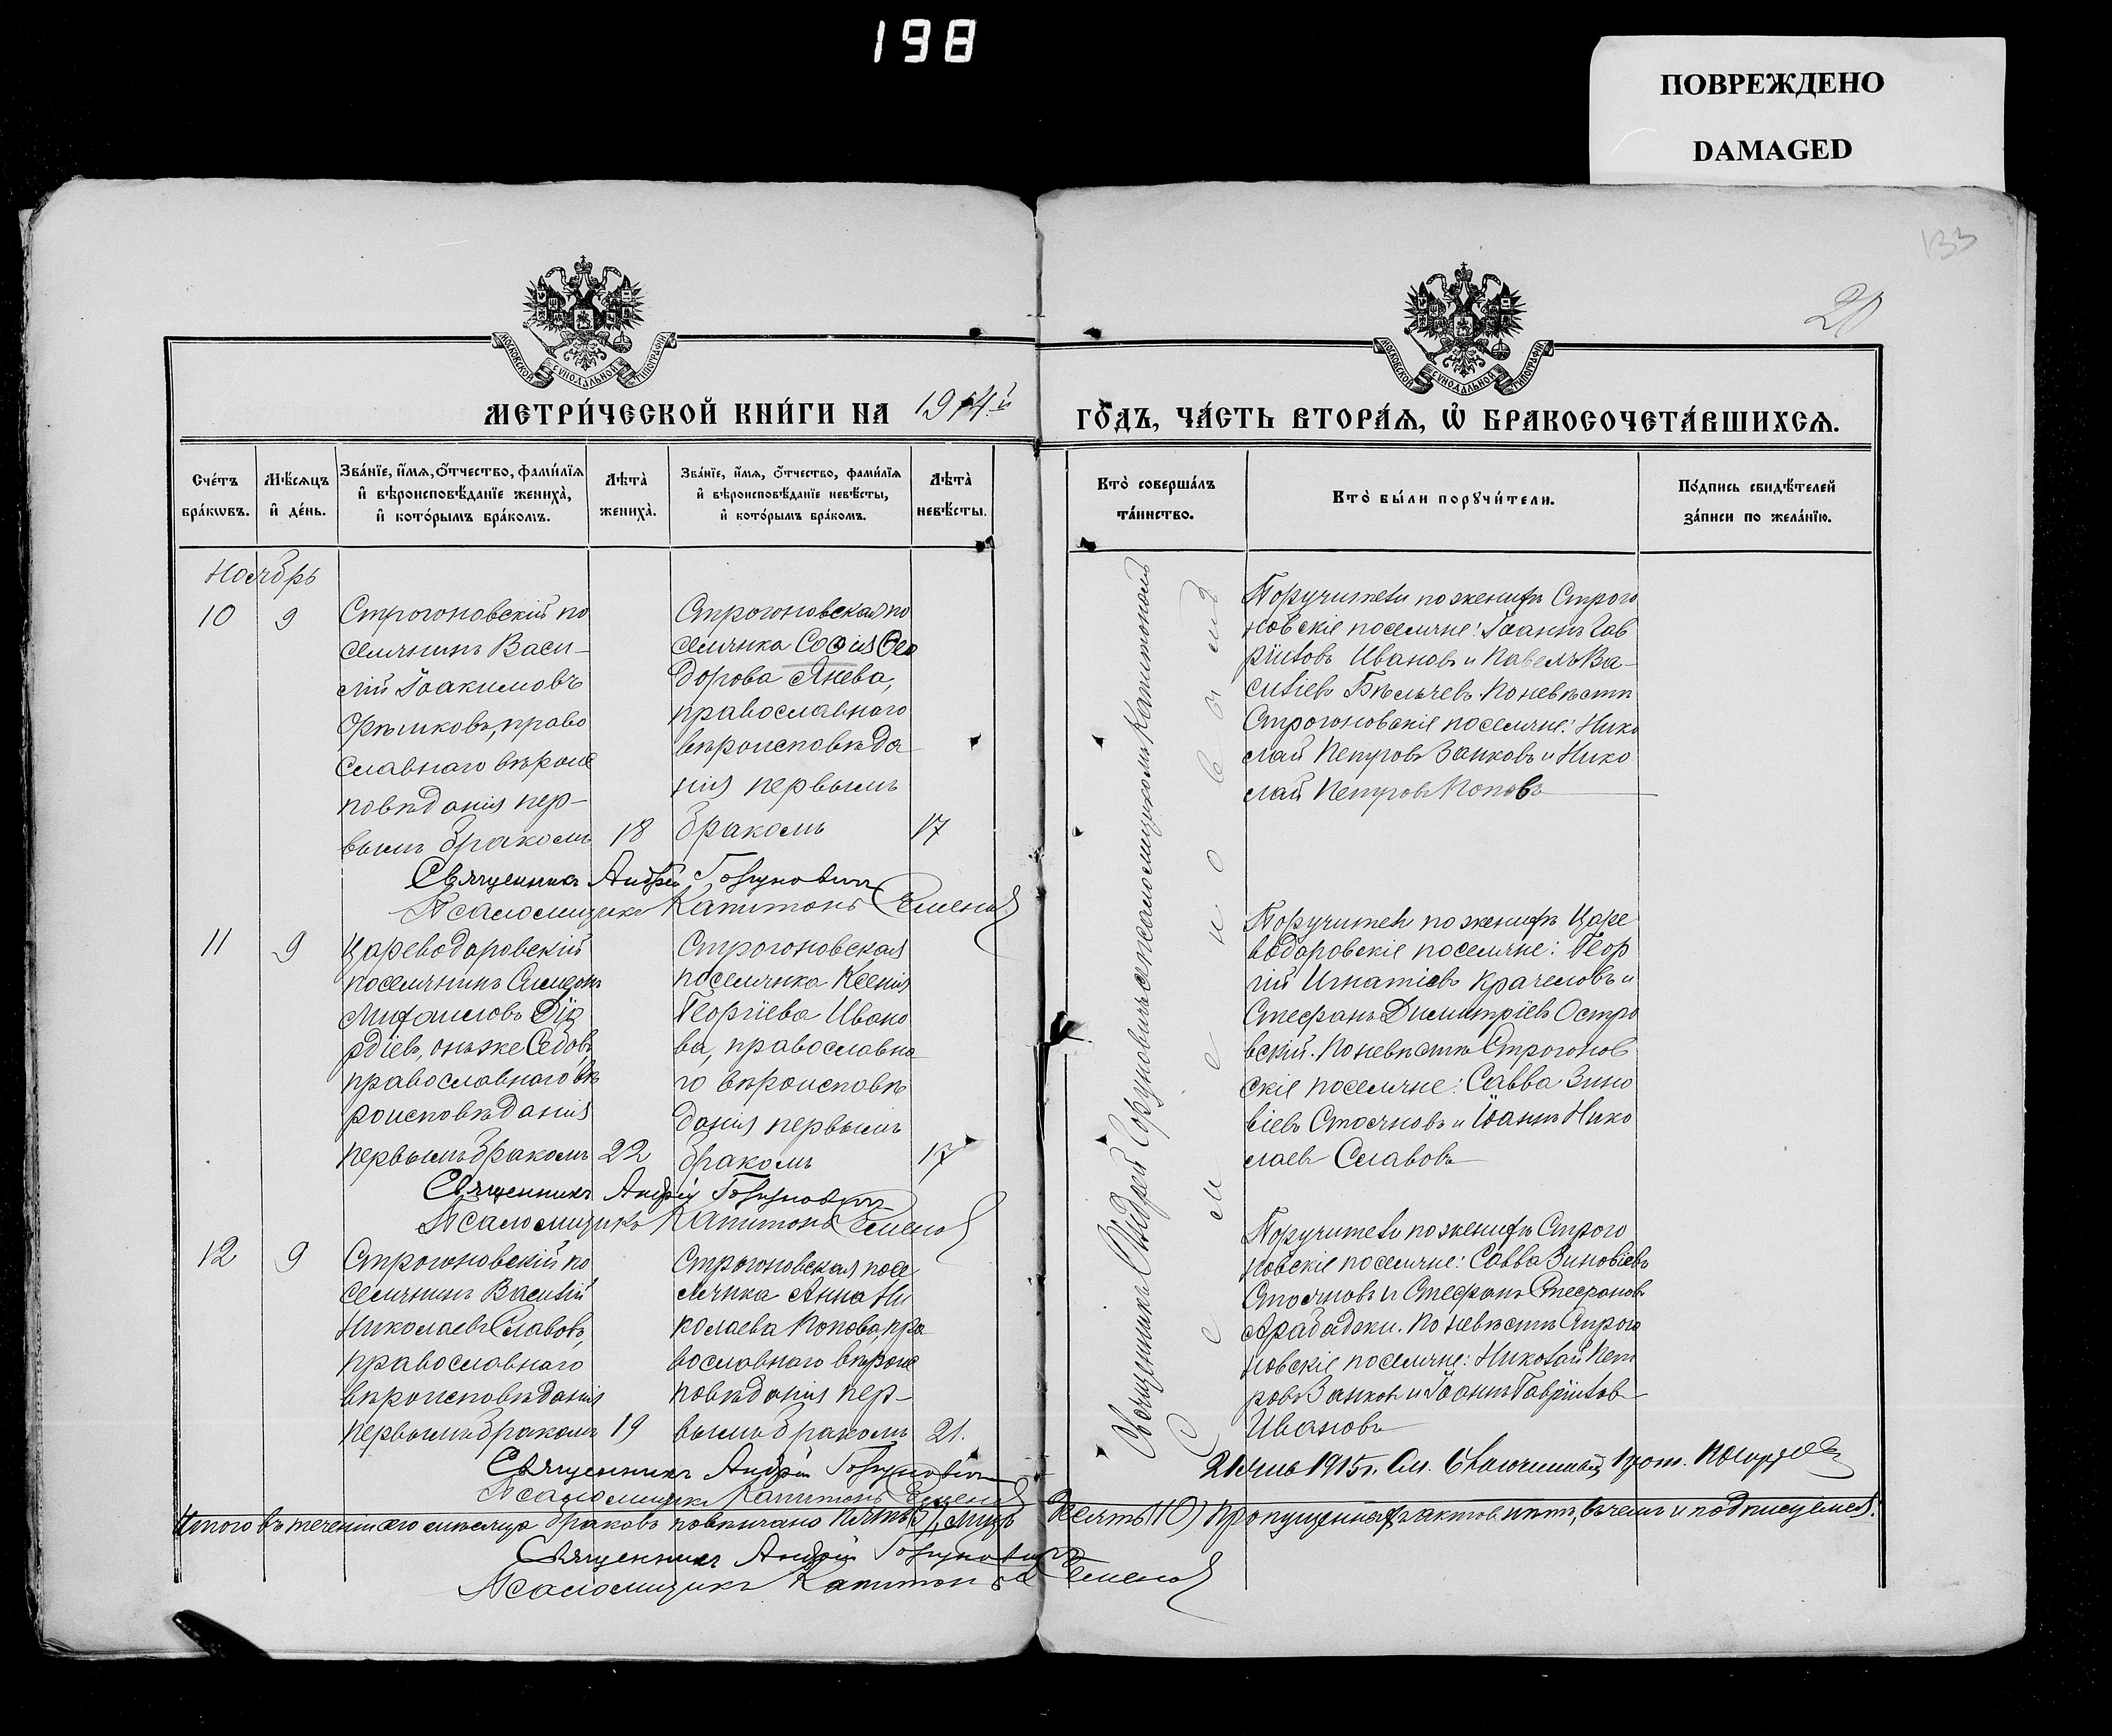 198
ПОВРЕЖДЕНО
DAMAGED
133
20
МОСКОВСКОЙ СУНОДАЛЬНОЙ ТИПОГРАФІИ
МОСКОВСКОЙ СУНОДАЛЬНОЙ ТИПОГРАФІИ
МЕТРИ́ЧЕСКОЙ КНИ́ГИ НА 1914й ГО́ДЪ, ЧА́СТЬ ВТОРА́Я, Ѿ БРАКОСОЧЕТА́ВШИХСѦ.
Сче́тъ
бра́кѡвъ.
Мѣ́сяцъ
и҆ де́нь.
Зва́нїе, и҆́мя, ѻ҆́тчество, фами́лїя
и҆ вѣроисповѣ́данїе жениха̀,
и҆ кото́рымъ бра́комъ.
Лѣта̀
жениха̀.
Зва́нїе, и҆́мя, ѻ҆́тчество, фами́лїя
и҆ вѣроисповѣ́данїе невѣ́сты,
и҆ кото́рымъ бра́комъ.
Лѣта̀
невѣ́сты.
Кто̀ соверша́лъ
та́инство.
Кто̀ бы́ли порꙋчи́тели.
По́дпись свидѣ́телей
за́писи по жела́нїю.
Ноябрь
10
9
Строгоновскій по
селянинъ Васи-
лій Іоакимовъ
право
славнаго вѣроис
повѣданія пер-
вымъ бракомъ
18
Строгоновская по
селянка Софія Ѳео
дорова Янева,
православнаго
вѣроисповѣда
нія первымъ
бракомъ
17
Священникъ Андрей
Псаломщикъ Капитонъ Семенов
Поручители по женихѣ Строго
новскіе поселяне: Іоаннъ Гав
рїиловъ Ивановъ и Павелъ Ва-
силіев Бѣльчев. По невѣстѣ
Строгоновскіе поселяне: Нико
лай Петровъ Занковъ и Нико
лай Петровъ Поповъ
11
9
Цареводаровскій
поселянинъ Симеонъ
Михаиловъ
онъ же Седовъ,
православнаго вѣ
роисповѣданія
первымъ бракомъ
22
Строгоновская
поселянка Ксенія
Георгіева Ивано
ва, православна
го вѣроисповѣ
данія первымъ
бракомъ
17
Священникъ Андрей
Псаломщикъ Капитонъ Семенов
Поручители по женихѣ Царе
водаровскіе поселяне: Геор
гій Игнатіевъ Крачеловъ и
Стефанъ Димитріевъ Остро
вскій. По невѣстѣ Строгонов
скіе поселяне: Савва Зино
віевъ Стояновъ и Іоаннъ Нико
лаевъ Славовъ
12
9
Строгоновскій по
селянинъ Василій
Николаевъ Славовъ,
православнаго
вѣроисповѣданія
первымъ бракомъ
19
Строгоновская посе
лянка Анна Ни
колаева Попова, пра
вославнаго вѣроис
повѣданія пер-
вымъ бракомъ
21.
Священникъ Андрей
Псаломщикъ Капитонъ Семенов
Поручители по женихѣ Строго
новскіе поселяне: Савва Зиновіевъ
Стояновъ и Стефанъ Стефановъ
Арабаджи. По невѣстѣ Строго
новскіе поселяне: Николай Пет
ровъ Занков и Іоаннъ Гаврїилов
Ивановъ
Священникъ Андрей съ псаломщикомъ Капитономъ
Семеновымъ
1915г.
Итого въ теченіи сего мѣсяца браковъ повѣнчано Пять (5), лицъ Десять (10) Пропущенныхъ актов нѣтъ, въ чемъ и подписуемся.
Священникъ Андрей
Псаломщикъ Капитонъ Семенов